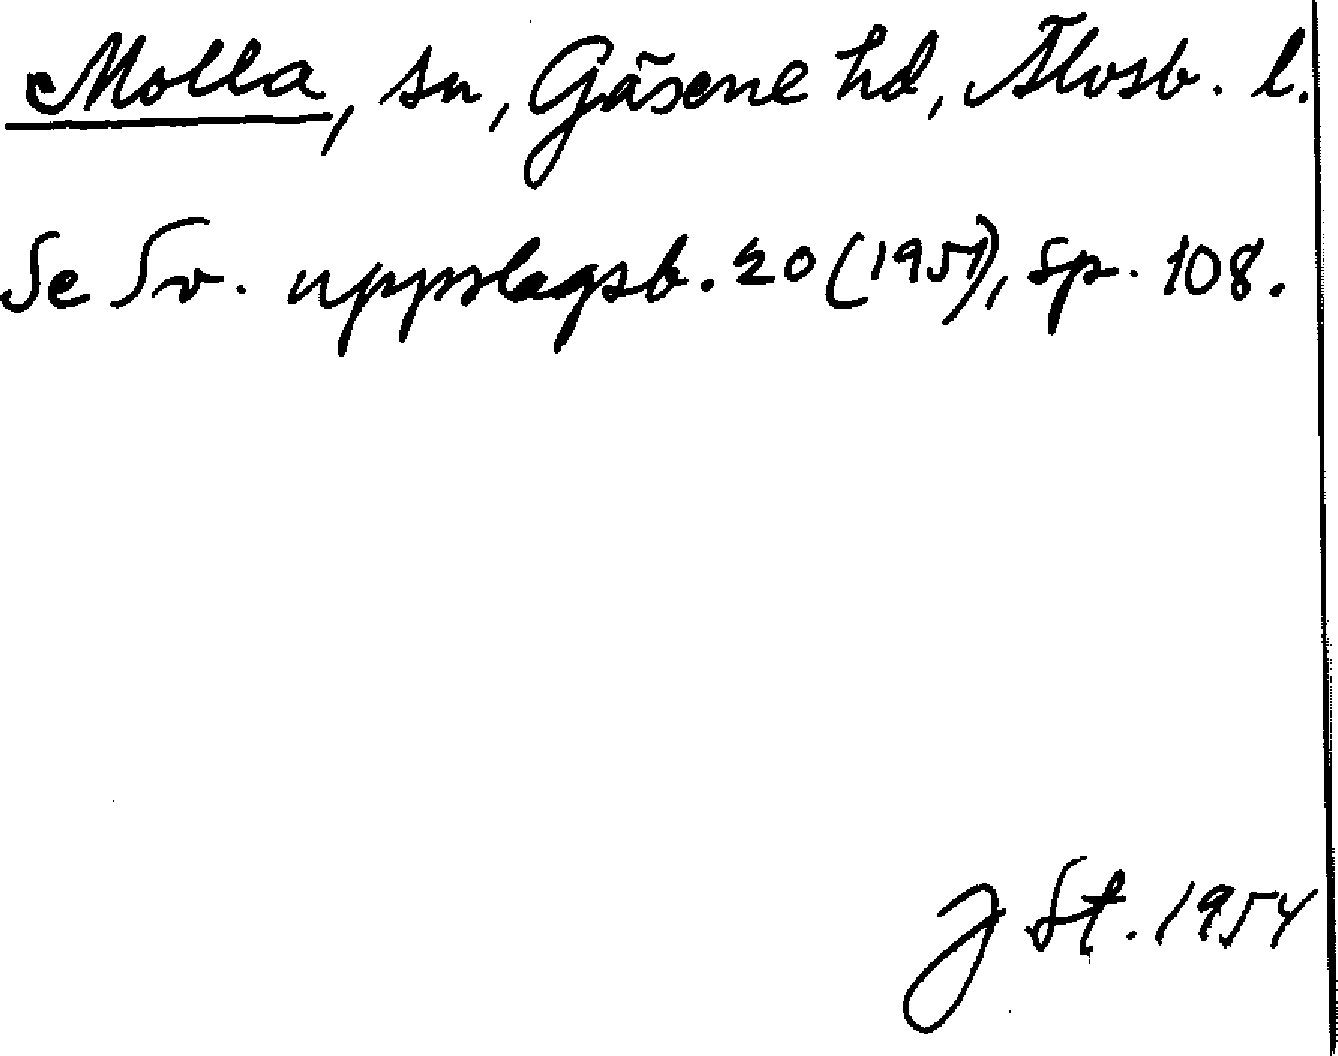 Molla, sn, Gäsene hd, Älvsb. l.
Se Sv. uppslagsb. 20 (1951), sp. 108.
J St. 1954